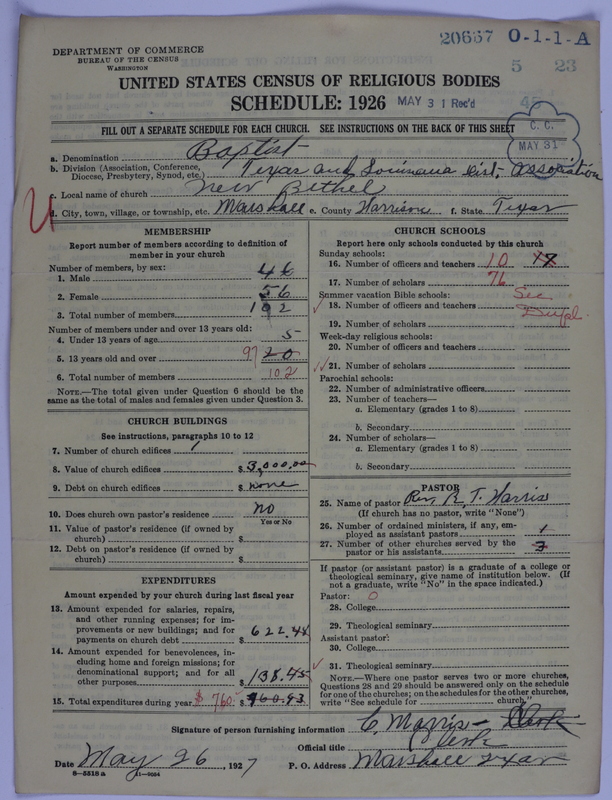 20657 0-1-1-A
5 23
DEPARTMENT OF COMMERCE
BUREAU OF THE CENSUS
WASHINGTON
UNITED STATES CENSUS OF RELIGIOUS BODIES
SCHEDULE: 1926 MAY 31 Rec'd
C. C.
MAY 31
FILL OUT A SEPARATE SCHEDULE FOR EACH CHURCH. SEE INSTRUCTIONS ON THE BACK OF THIS SHEET
a. Denomination Baptist
b. Division (Association, Conference, Diocese, Presbytery, Synod, etc.) Texas and Louisiana Dist, Association
c. Local name of church New Bethel
d. City, town, village, or township, etc. Marshall e. County Harrison f. State Texas
MEMBERSHIP
Report number of members according to definition of
member in your church
Number of members, by sex:
1. Male 46
2. Female 56
3. Total number of members 102
Number of members under and over 13 years old:
4. Under 13 years of age 5
5. 13 years old and over 97 20
6. Total number of members 102
NOTE.—The total given under Question 6 should be
same as the total of males and females given under Question 3.
CHURCH BUILDINGS
See instructions, paragraphs 10 to 12
7. Number of church edifices 1
8. Value of church edifices $ 3,000.00
9. Debt on church edifices $ none
10. Does church own pastor's residence no
Yes or No
11. Value of pastor's residence (if owned by
church) $
12. Debt on pastor's residence (if owned by
church) $
EXPENDITURES
Amount expended by your church during last fiscal year
13. Amount expended for salaries, repairs,
and other running expenses; for im-
provements or new buildings; and for
payments on church debt $ 622.48
14. Amount expended for benevolences, in-
cluding home and foreign missions; for
denominational support; and for all
other purposes $ 138.45
15. Total expenditures during year $ 760.- $ 760.93
CHURCH SCHOOLS
Report here only schools conducted by this church
Sunday schools:
16. Number of officers and teachers 10
17. Number of scholars 76
Summer vacation Bible schools: See
18. Number of officers and teachers Dupl.
19. Number of scholars
Week-day religious schools:
20. Number of officers and teachers
21. Number of scholars
Parochial schools:
22. Number of administrative officers
23. Number of teachers—
a. Elementary (grades 1 to 8)
b. Secondary
24. Number of scholars—
a. Elementary (grades 1 to 8)
b. Secondary
PASTOR
25. Name of pastor Rev R. T. Harris
(If church has no pastor, write "None")
26. Number of ordained ministers, if any, em-
ployed as assistant pastors 1
27. Number of other churches served by the
pastor or his assistants 3
If pastor (or assistant pastor) is a graduate of a college or
theological seminary, give name of institution below. (If
not a graduate, write "No" in the space indicated.)
Pastor: 0
28. College
29. Theological seminary
Assistant pastor:
30. College
31. Theological seminary
NOTE.—Where one pastor serves two or more churches,
Questions 28 and 29 should be answered only on the schedule
for one of the churches; on the schedules for the other churches,
write "See schedule for church."
Signature of person furnishing information C. Morris - Clerk
Official title Clerk
Date May 26, 1927 P. O. Address Marshall Texas
8-5518 a 11-9064